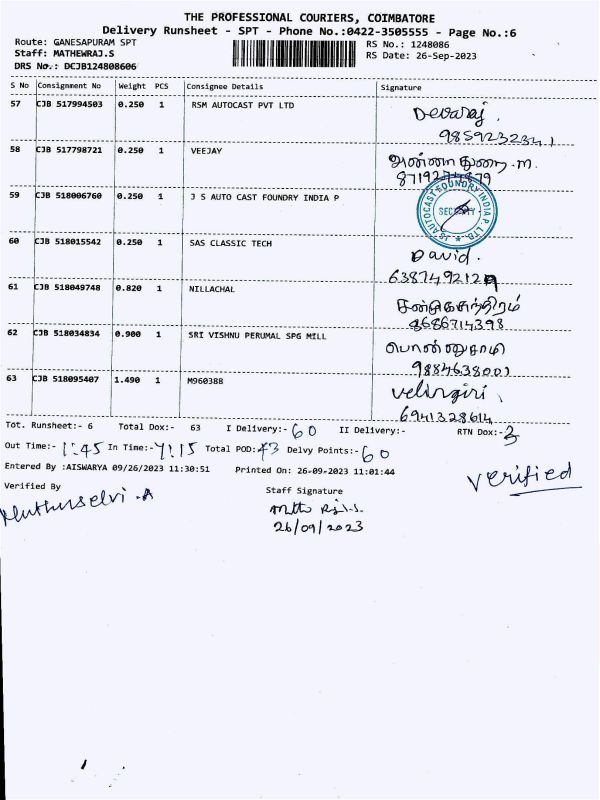 THE PROFESSIONAL COURIERS, COIMBATORE
Delivery Runsheet - SPT - Phone No.:0422-3505555 - Page No.:6
Route: GANESAPURAM SPT RS No.: 1248086
Staff: MATHEWRAJ.S RS Date: 26-Sep-2023
DRS No.: DCJB124808606
S No Consignment No Weight PCS Consignee Details Signature
57 CJB 517994503 0.250 1 RSM AUTOCAST PVT LTD Devaraj.
9859232341
58 CJB 517798721 0.250 1 VEEJAY அண்ணாதுரை.m.
59 CJB 518006760 0.250 1 J S AUTO CAST FOUNDRY INDIA P JS AUTOCAST FOUNDRY INDIA P. LTD. SECURITY
60 CJB 518015542 0.250 1 SAS CLASSIC TECH David.
638749212
61 CJB 518049748 0.820 1 NILLACHAL
8686714398
62 CJB 518034834 0.900 1 SRI VISHNU PERUMAL SPG MILL பொன்னுசாமி
9884638001
63 CJB 518095407 1.490 1 M960388 velingiri,
6941328614
Tot. Runsheet:- 6 Total Dox:- 63 I Delivery:- 60 II Delivery:- RTN Dox:- 3
Out Time:- 11:45 In Time:- 4:15 Total POD: 43 Delvy Points:- 60
Entered By :AISWARYA 09/26/2023 11:30:51 Printed On: 26-09-2023 11:01:44 verified
Verified By Staff Signature
Muthuselvi.A
26/09/2023